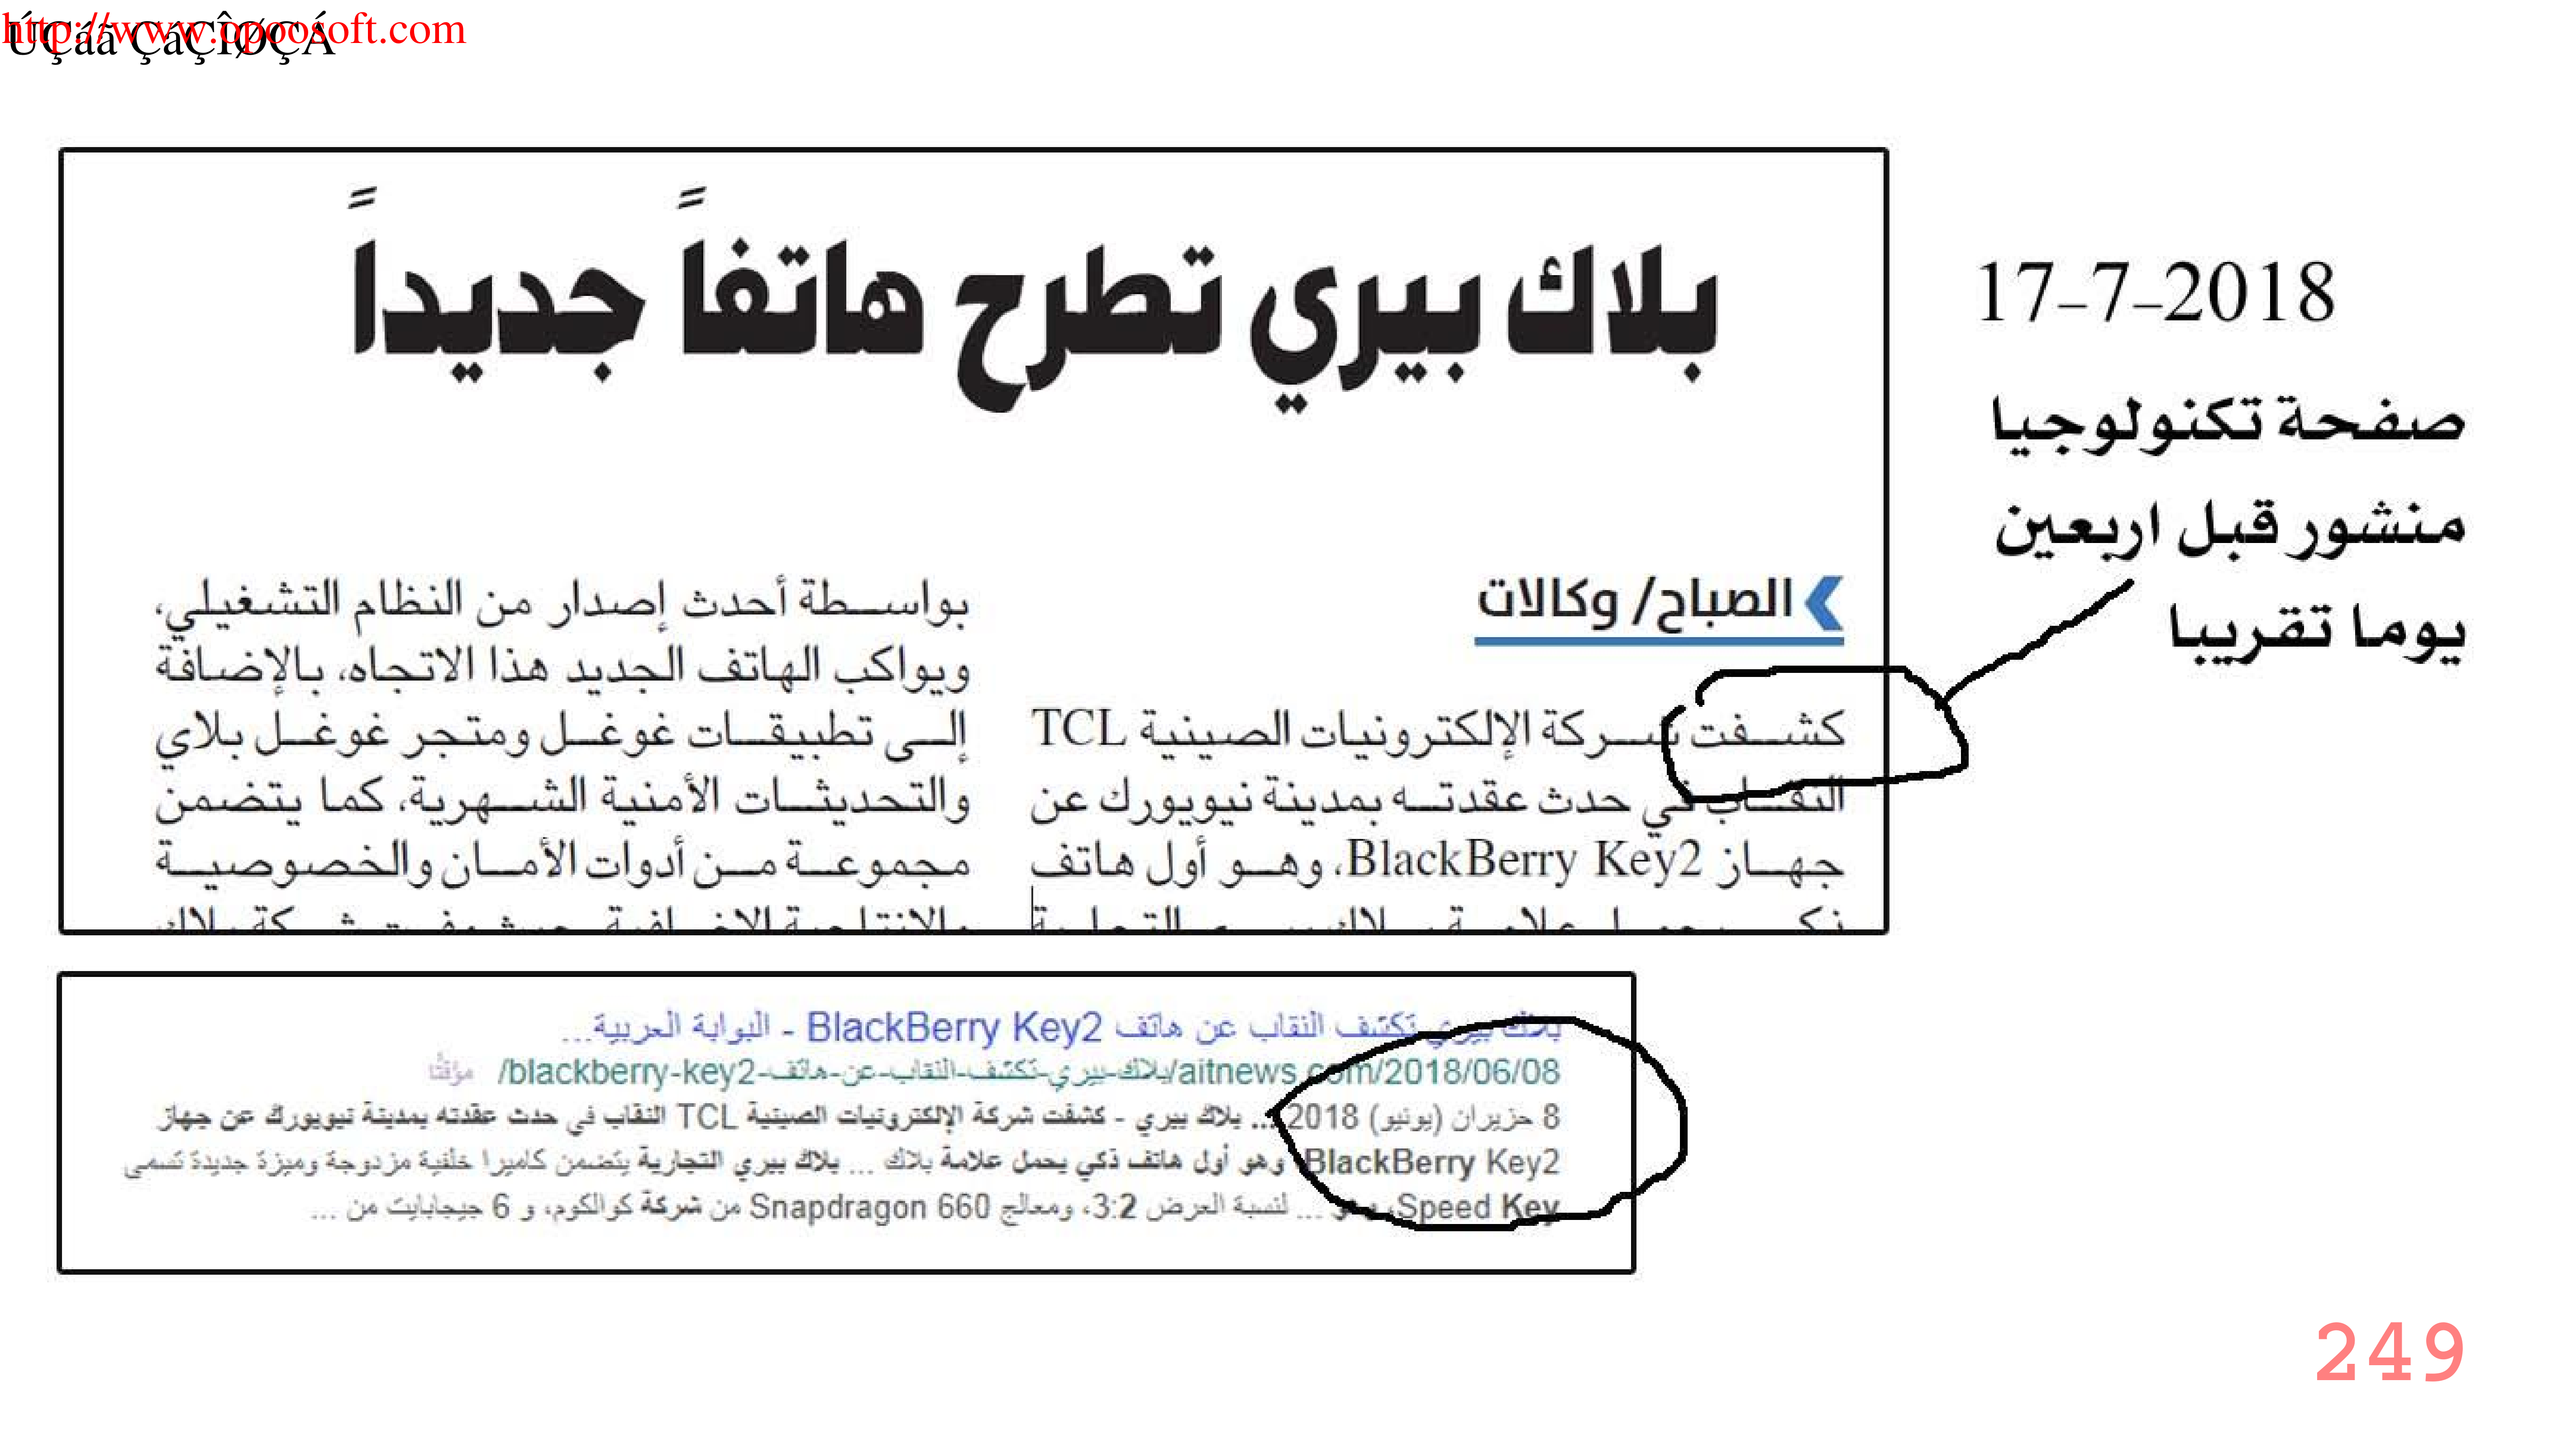 http://www.opoosoft.com
ÚÇáã ÇáÇÎØÇÁ
17-7-2018
صفحة تكنولوجيا
منشور قبل اربعين
يوما تقريبا
بلاك بيري تطرح هاتفاً جديداً
الصباح/ وكالات
كشفت شركة الإلكترونيات الصينية TCL
النقاب في حدث عقدته بمدينة نيويورك عن
جهاز BlackBerry Key2، وهو أول هاتف
بواسطة أحدث إصدار من النظام التشغيلي،
ويواكب الهاتف الجديد هذا الاتجاه، بالإضافة
إلى تطبيقات غوغل ومتجر غوغل بلاي
والتحديثات الأمنية الشهرية، كما يتضمن
مجموعة من أدوات الأمان والخصوصية
بلاك بيري تكشف النقاب عن هاتف BlackBerry Key2 - البوابة العربية...
aitnews.com/2018/06/08/بلاك-بيري-تكشف-النقاب-عن-هاتف-blackberry-key2/ مؤقتًا
8 حزيران (يونيو) 2018 ... بلاك بيري - كشفت شركة الإلكترونيات الصينية TCL النقاب في حدث عقدته بمدينة نيويورك عن جهاز
BlackBerry Key2، وهو أول هاتف ذكي يحمل علامة بلاك ... بلاك بيري التجارية يتضمن كاميرا خلفية مزدوجة وميزة جديدة تسمى
Speed Key، وهو ... لنسبة العرض 3:2، ومعالج Snapdragon 660 من شركة كوالكوم، و 6 جيجابايت من ...
249